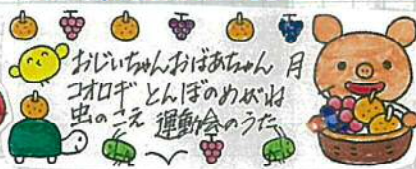 おじいちゃんおばあちゃん 月
コオロギ とんぼのめがね
虫のこえ 運動会のうた